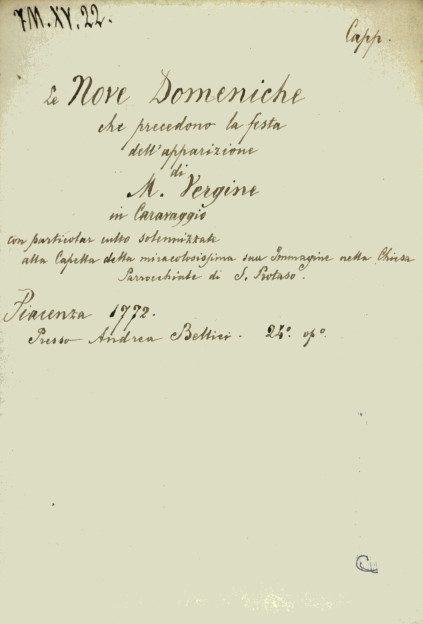 7M.XV.22.
Capp.
Le Nove Domeniche
che precedono la festa
dell'apparizione
di
M. Vergine
in Caravaggio
con particolar culto solennizzate
alla Capella della miracolosissima sua Immagine nella Chiesa
Parrocchiale di S. Protaso.
Piacenza 1772.
Presso Andrea Bellici. 24º. opº.